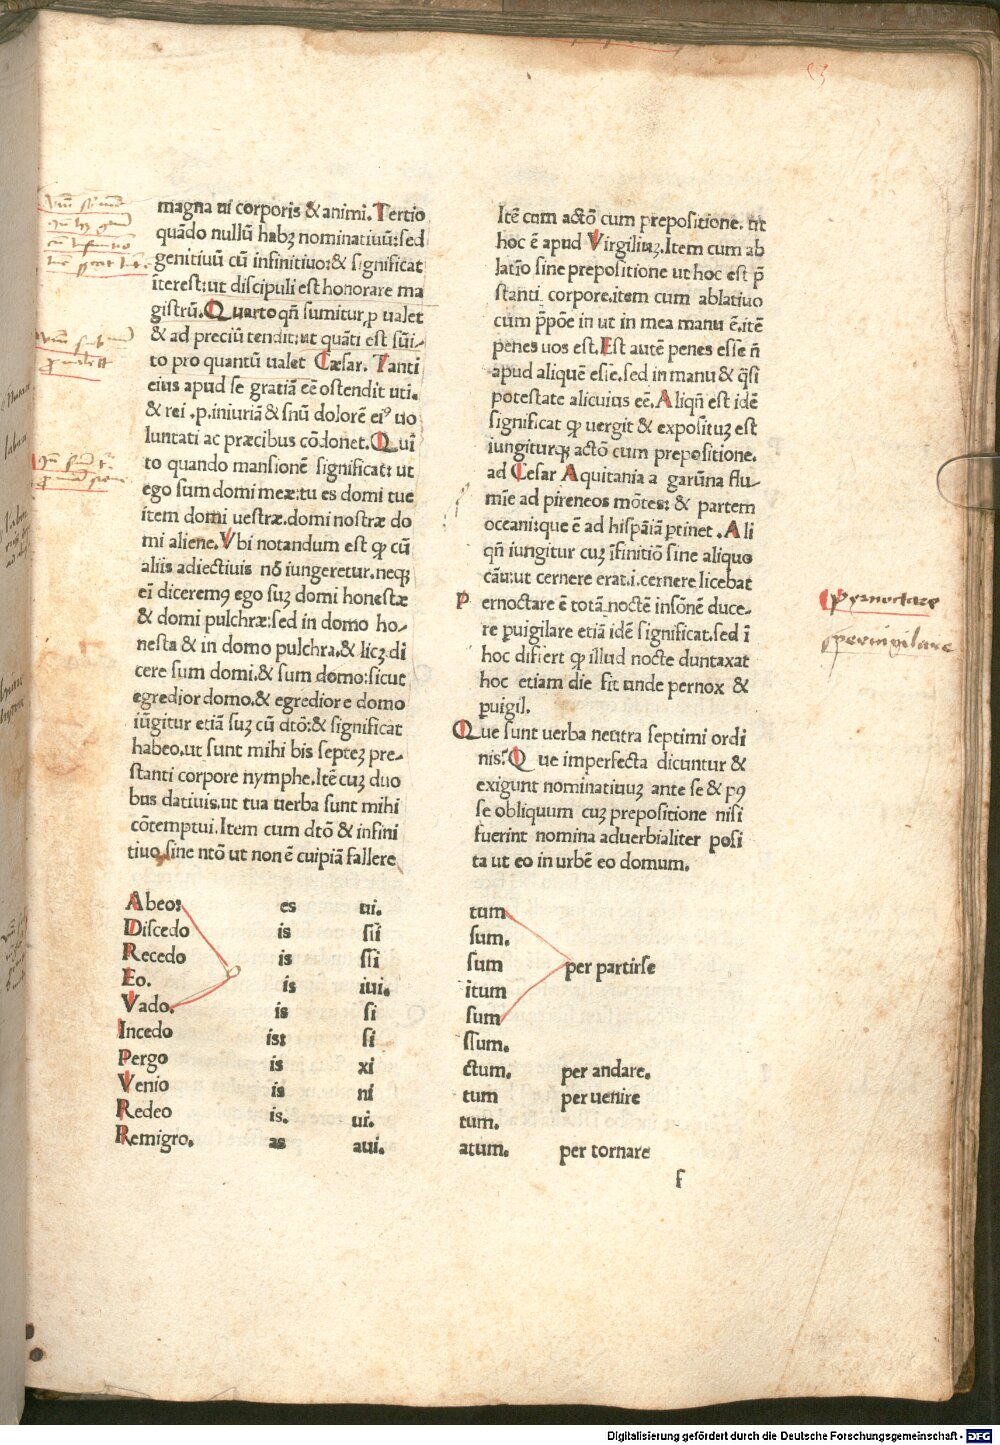 magna ui corporis & animi. Tertio
quãdo nullũ habꝫ nominatiuũ: sed
genitiuũ cũ infinitiuo: & significat
ĩterest: ut discipuli est honorare ma
gistrũ. Quarto qñ sumitur, p ualet
& ad preciũ tendit: ut quãti est sũi-
to pro quantũ ualet Cæsar. Tanti
eius apud se gratiã eẽ ostendit uti.
& rei .p. iniuriã & snũ dolorẽ eiꝰ uo
luntati ac præcibus cõdonet. Qui
to quando mansionẽ significat: ut
ego sum domi meæ: tu es domi tue
item domi uestræ. domi nostræ do
mi aliene. Vbi notandum est ꝙ cũ
aliis adiectiuis nõ iungeretur. neqꝫ
eĩ diceremꝰ ego suꝫ domi honestæ
& domi pulchræ: sed in domo ho-
nesta & in domo pulchra. & licꝫ di
cere sum domi. & sum domo: sicut
egredior domo. & egredior e domo
iũgitur etiã suꝫ cũ dtõ: & significat
habeo. ut sunt mihi bis septeꝫ pre-
stanti corpore nymphe. Itẽ cuꝫ duo
bus datiuis. ut tua uerba sunt mihi
cõtemptui. Item cum dtõ & infini
tiuo sine ntõ ut non ẽ cuipiã fallere
Itẽ cum actõ cum prepositione. ut
hoc ẽ apud Virgiliuꝫ. Item cum ab
latĩo sine prepositione ut hoc est p̃
stanti corpore. item cum ablatiuo
cum p̃põe in ut in mea manu ẽ. itẽ
penes uos est. Est autẽ penes esse ñ
apud aliquẽ esse. sed in manu & q̃si
potestate alicuius eẽ. Aliqñ est idẽ
significat ꝙ uergit & expositus est
iungiturqꝫ actõ cum prepositione.
ad Cesar Aquitania a garũna flu-
mĩe ad pireneos mõtes: & partem
oceani: que ẽ ad hispãiã ꝑtinet. Ali
qñ iungitur cuꝫ ĩfinitiõ sine aliquo
cãu: ut cernere erat. i. cernere licebat
p ernoctare ẽ totã noctẽ insõnẽ duce-
re puigilare etiã idẽ significat. sed ĩ
hoc differt ꝙ illud nocte duntaxat
hoc etiam die fit unde pernox &
ꝑuigil.
Que sunt uerba neutra septimi ordi
nis? Que imperfecta dicuntur &
exigunt nominatiuuꝫ ante se & pꝯ
se obliquum cuꝫ prepositione nisi
fuerint nomina aduerbialiter posi
ta ut eo in urbẽ eo domum.
Abeo: es ui. tum
Discedo is sii sum.
Recedo is ssi sum per partirse
Eo. is iui. itum
Vado. is si sum
Incedo is: si ssum.
Pergo is xi ctum. per andare.
Venio is ni tum per uenire
Redeo is. ui. tum.
Remigro. as aui. atum. per tornare
f
pernoctare
peruigilare
Digitalisierung gefördert durch die Deutsche Forschungsgemeinschaft - DFG